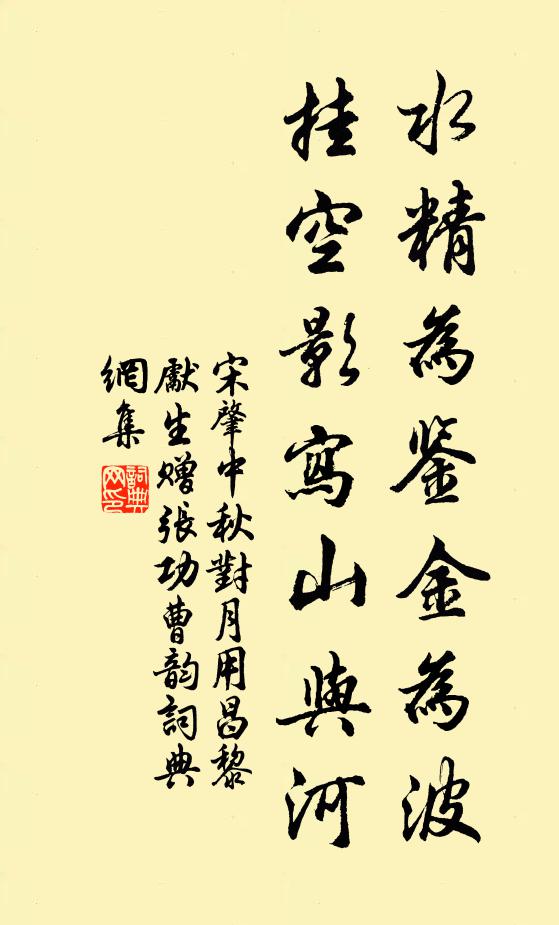 水精為鉴金為波
挂空影寫山與河
宋肇中秋對月用昌黎
獻生赠張功曹韵詞典
網集
詞典
网印